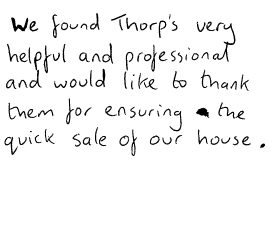 We found Thorp's very
helpful and professional
and would like to thank
them for ensuring the
quick sale of our house.